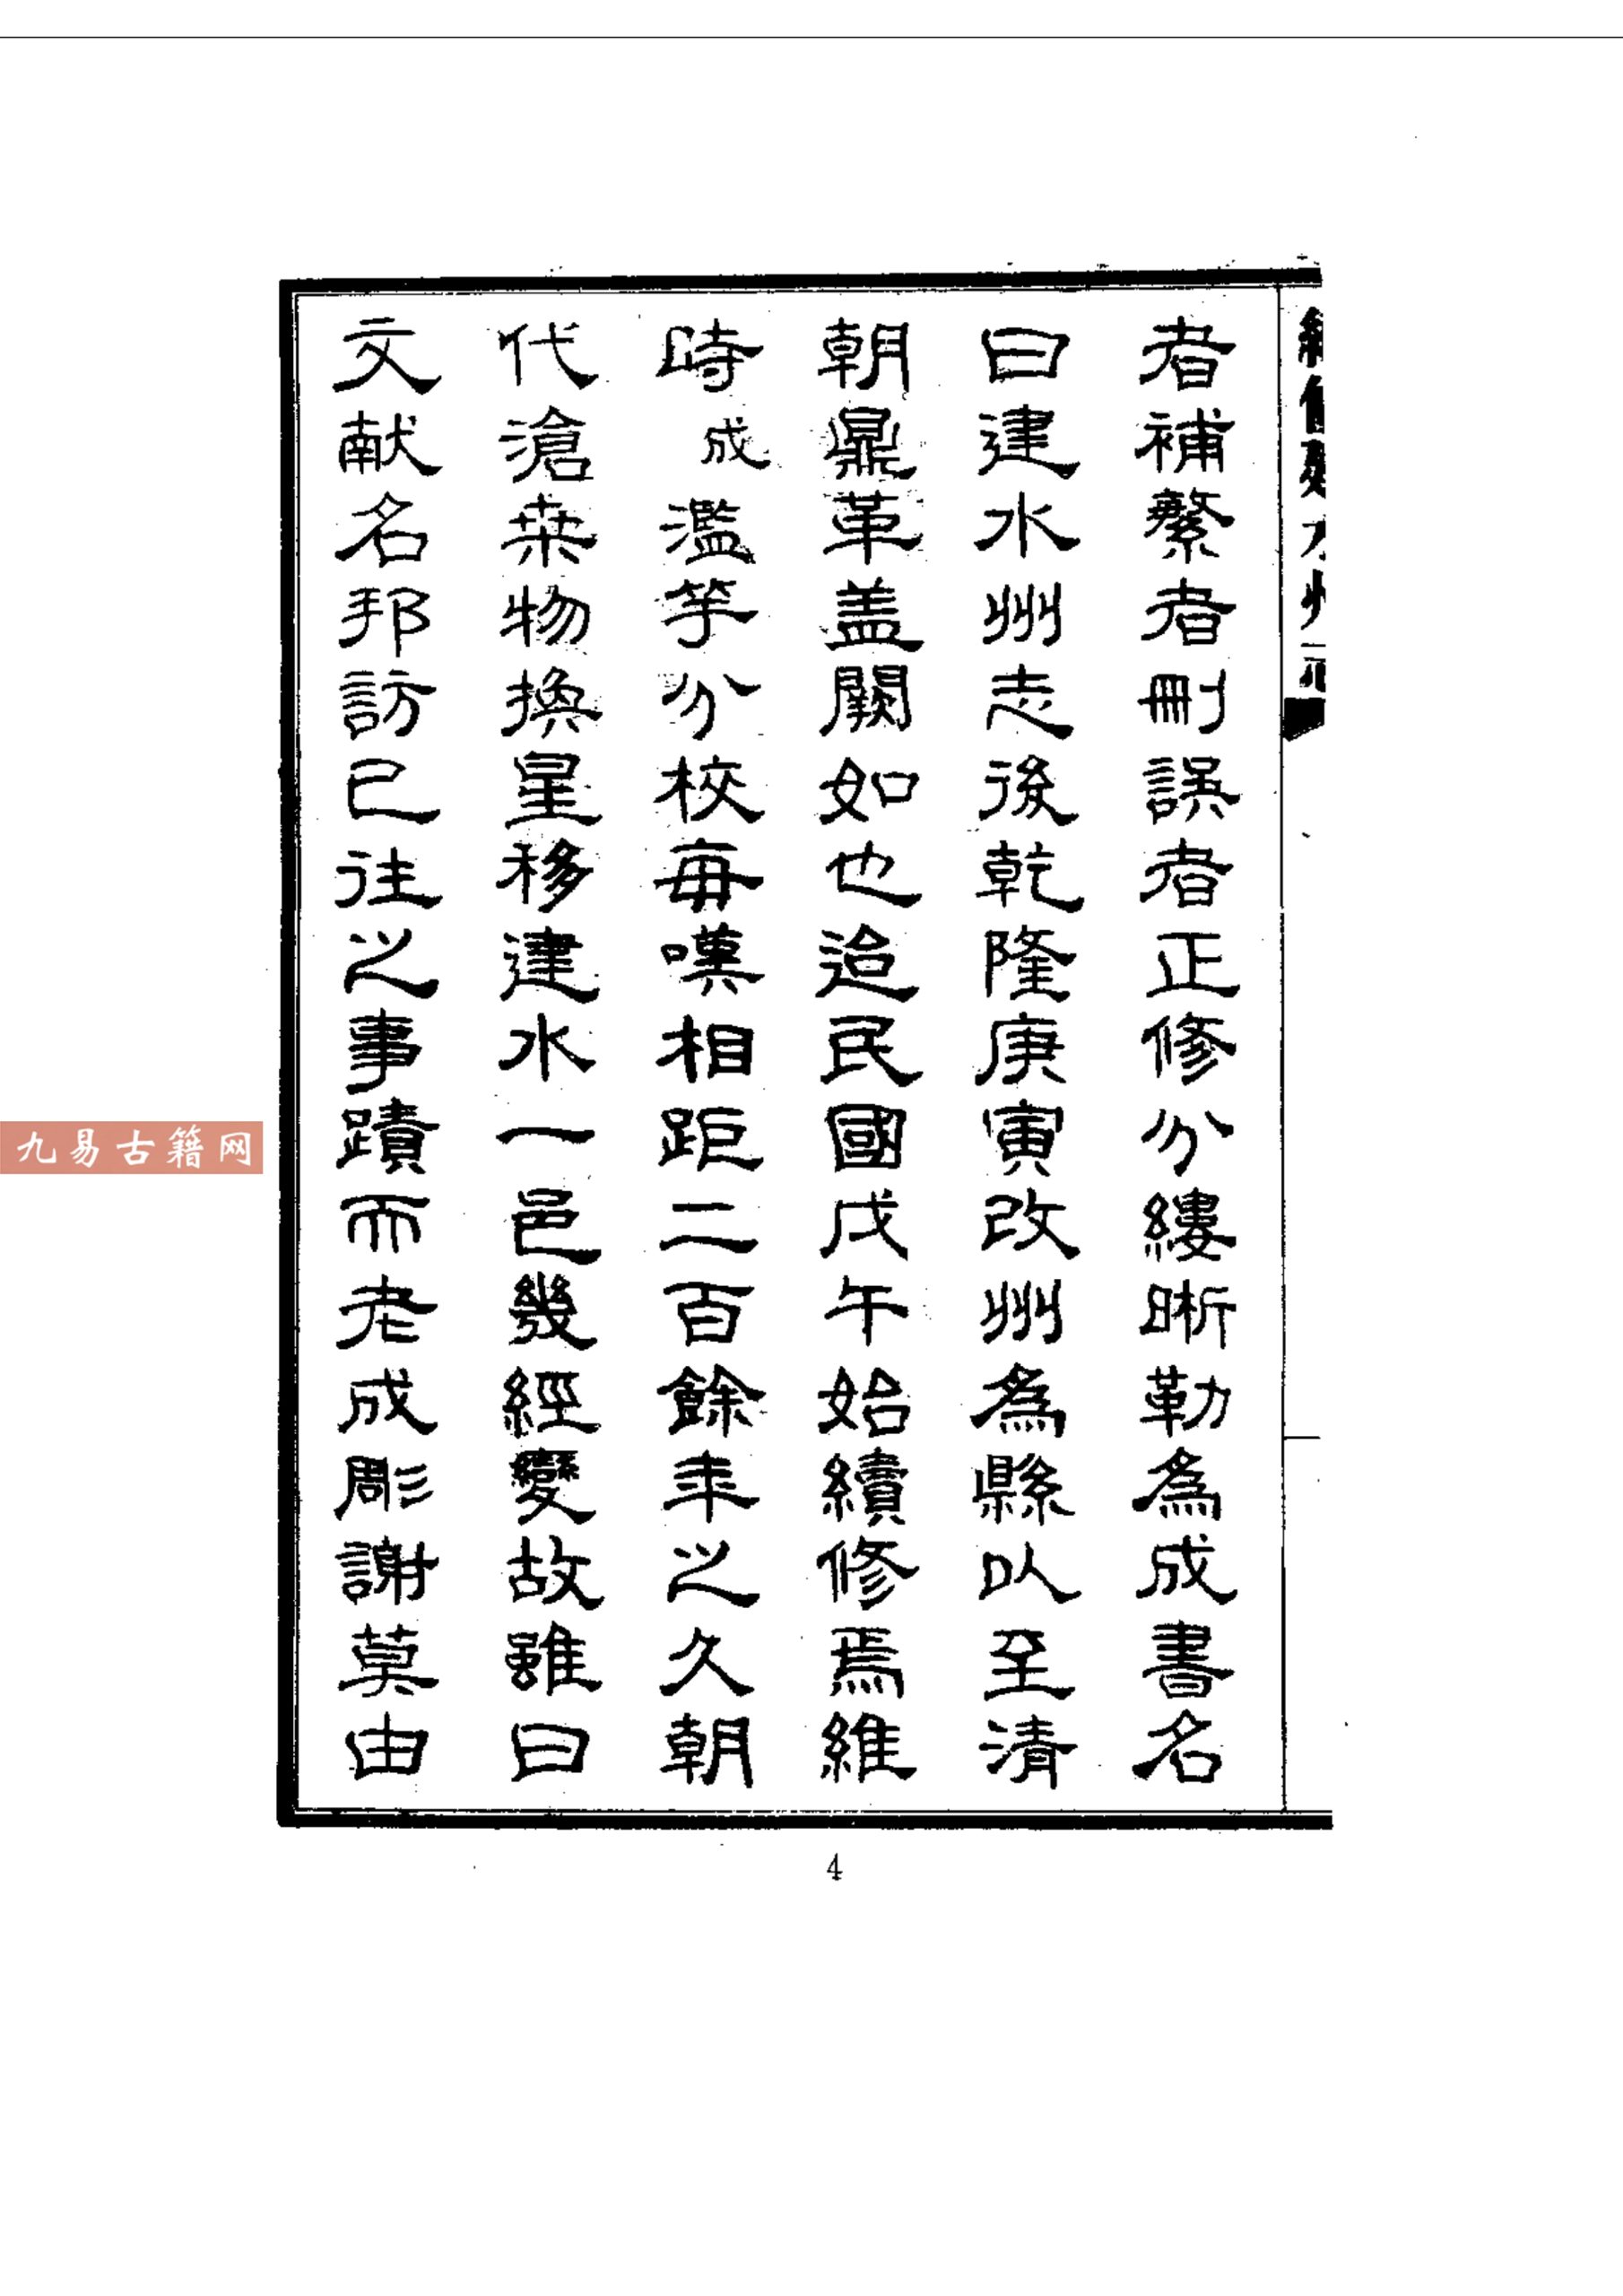 者補繁者刪誤者正修分縷晰勒為成書名
曰建水州志後乾隆庚寅改州為縣以至清
朝鼎革蓋闕如也迨民國戊午始續修焉維
時成濫竽分校每嘆相距二百餘年之久朝
代滄桒物換星移建水一邑幾經變故雖曰
文献名邦訪已往之事蹟而老成彫謝莫由
4
九易古籍网